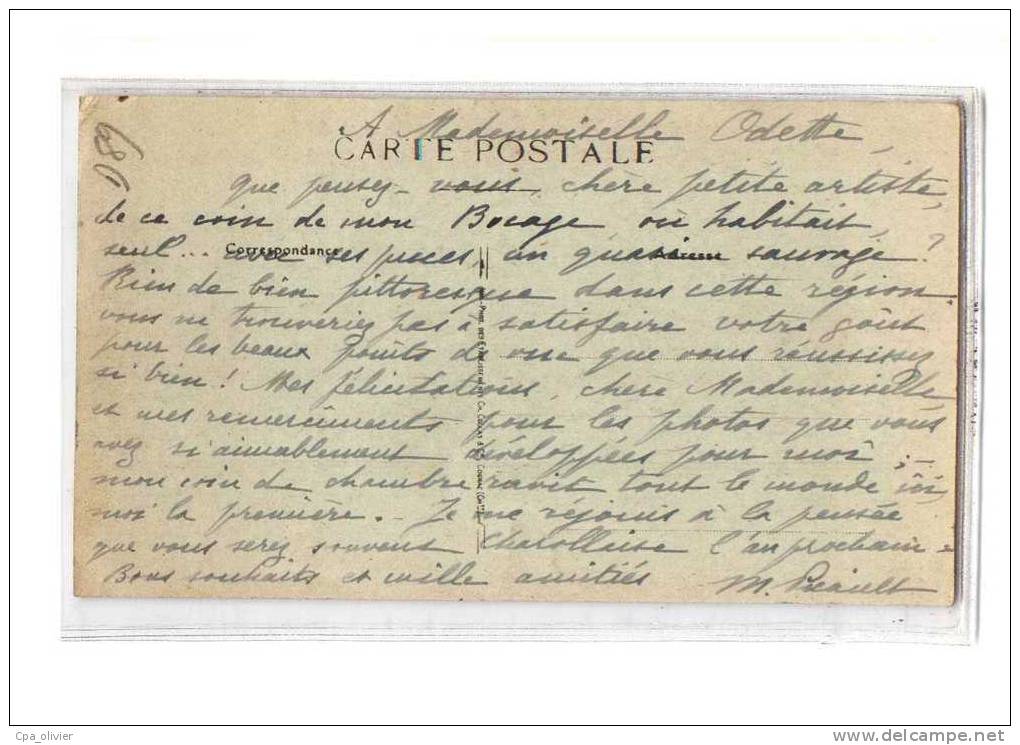 A Mademoiselle Odette,
CARTE POSTALE
que pensez-vous, chère petite artiste,
de ce coin de mon Bocage où habitait,
seul... avec ses puces, un quasi sauvage ?
Correspondance
Adresse
Rien de bien pittoresque dans cette région.
vous ne trouveriez pas à satisfaire votre goût
pour les beaux points de vue que vous réussissez
si bien ! Mes félicitations, chère Mademoiselle
et mes remerciments pour les photos que vous
avez si aimablement développées pour moi ; -
mon coin de chambre ravit tout le monde ici,
moi la première. - Je me réjouis à la pensée
que vous serez souvent Charollaise l'an prochain -
Bons souhaits et mille amitiés
Cpa_olivier
www.delcampe.net